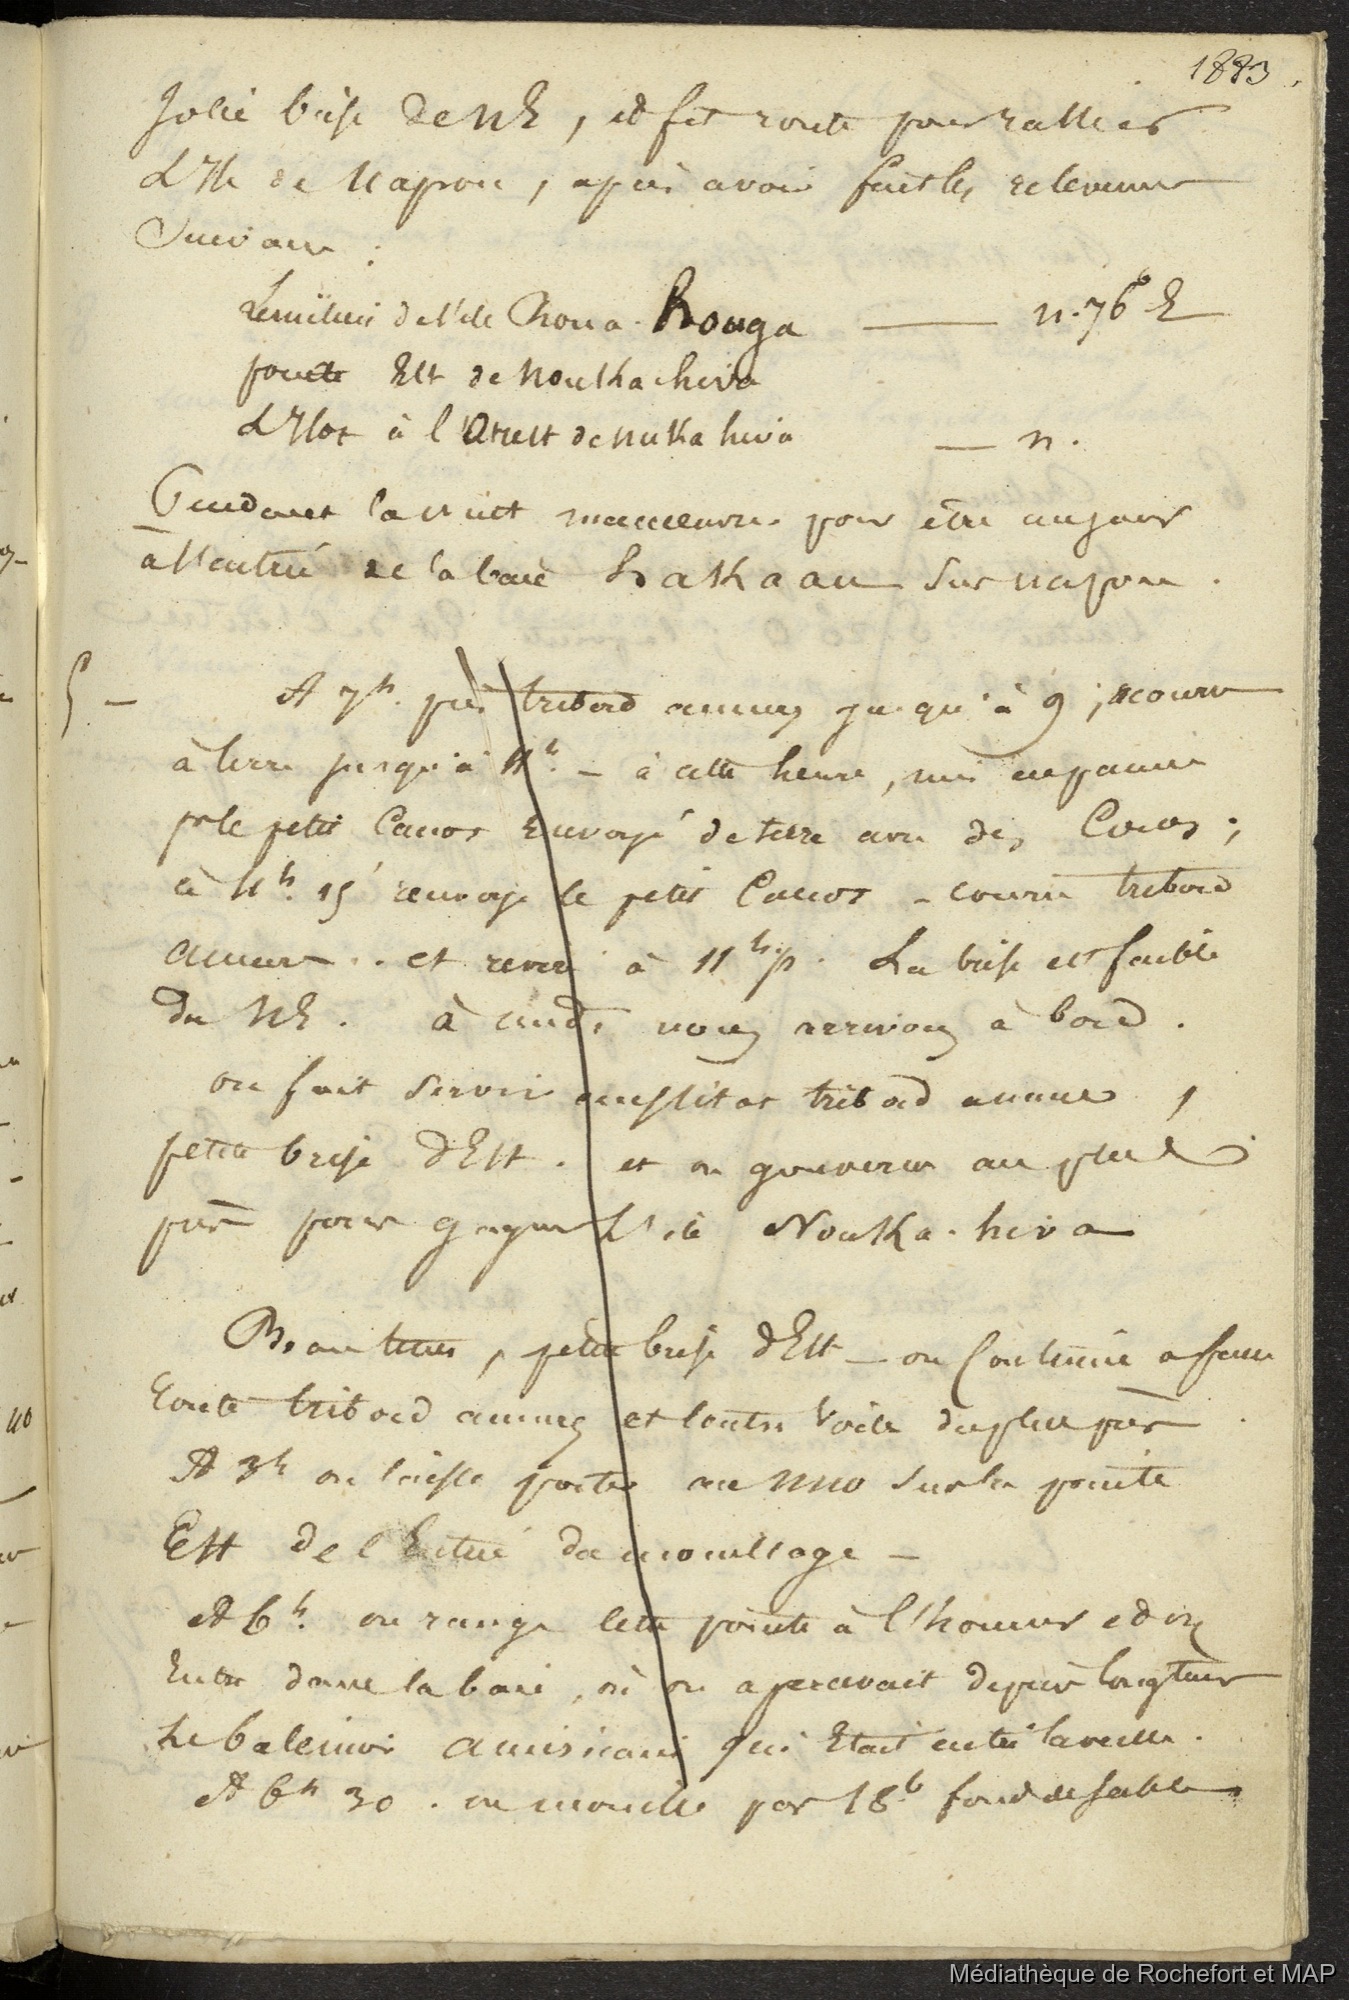 1883
Jolie brise de NE, et fit route pour rallier
L'Ile de Uapou, après avoir fait les relevemens
Suivans :
Le milieu de l'ile Roua-Houga — N. 76° E
pointe Est de Noukahiva
L'Ilot à l'Ouest de Nukahiva — N.
Pendant la nuit manoeuvres pour être au jour
à l'entrée de la baie hakaau sur uapou.
5 — A 7h. pris tribord amures jusqu'à 9 ; recouru
à terre jusqu'à 11h. — à cette heure, mis en panne
pr le petit Canot envoyé de terre avec des Cocos ;
à 11h. 15' renvoyé le petit Canot — couru tribord
amures . et reviré à 11h p. La brise est faible
du NE . à midi nous arrivons à bord .
on fait servir aussitot tribord amures ,
petite brise d'Est . et on gouverne au plus
près pour gagner l'ile Nouka-hiva
Beau tems, petite brise d'Est — on Continue a faire
route tribord amures et toutes voiles du plus près .
A 3h on laisse porter au NNO sur la pointe
Est de l'Entrée du mouillage —
A 6h. on range cette pointe à l'honneur et on
Entre dans la baie, où on apercevait depuis longtems
le baleinier américain qui Etait entré la veille.
A 6h 30 . on mouille par 18 b. fond de sable
Médiathèque de Rochefort et MAP